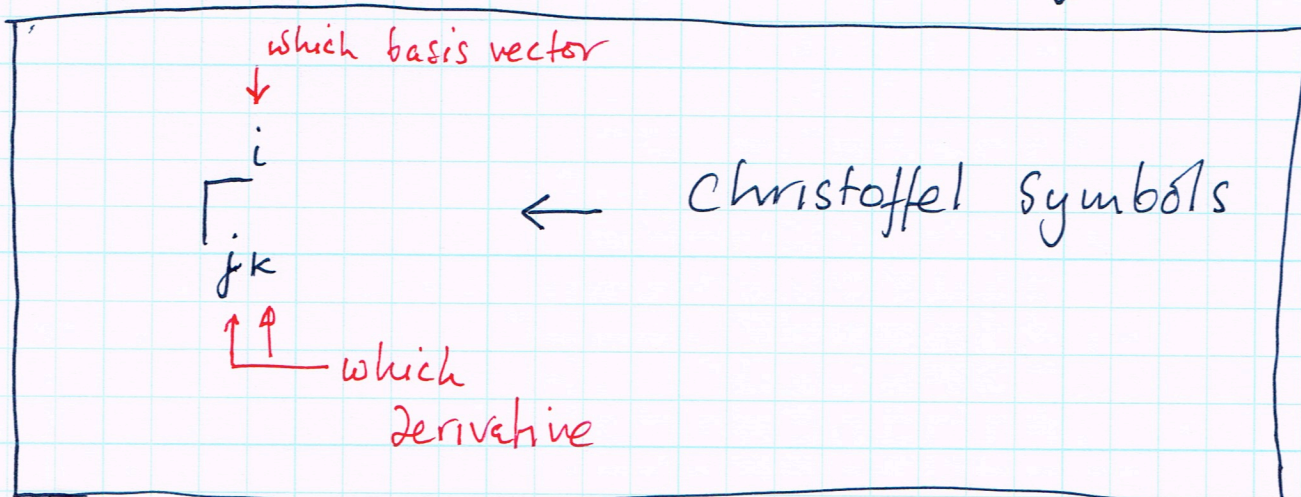 which basis vector
↓
i
Γ ← Christoffel Symbols
jk
which
derivative